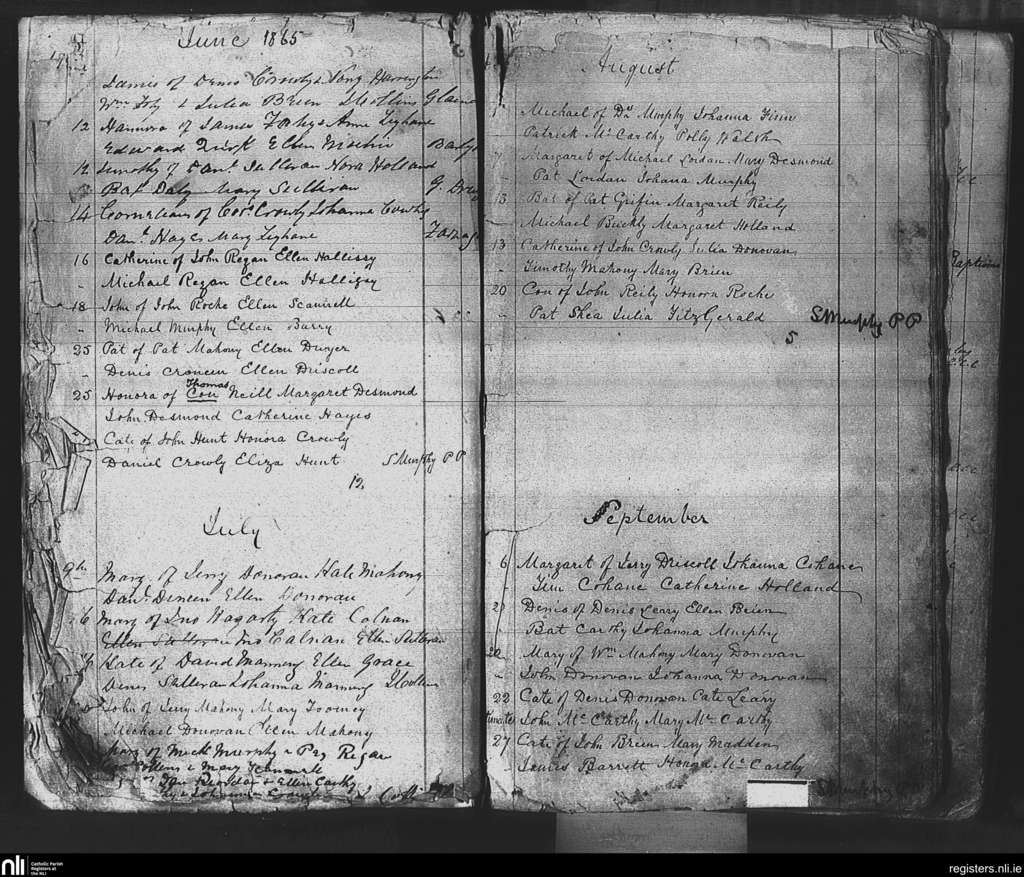 June 1865
James of Denis Crowly & Peny Harrington
Wm Foly & Julia Brien SCollins
12 Hannora of James Fahy & Anne Lyhane
Edward Quirk Ellen Meehin
12 Timothy of Danl. Sullivan Nora Holland
Bat Daly Mary Sullivan
14 Cornelieus of Cors. Crowly Johanna Crowly
Danl. Hayes Mary Lyhane
16 Catherine of John Regan Ellen Hallissy
- Michael Regan Ellen Hallissy
18 John of John Roche Ellen Scannell
- Michael Murphy Ellen Barry
25 Pat of Pat Mahony Ellen Dwyer
- Denis Croneen Ellen Driscoll
Thomas
25 Honora of Con Neill Margaret Desmond
John Desmond Catherine Hayes
Cate of John Hunt Honora Crowly
Daniel Crowly Eliza Hunt SMurphy PP
12
July
9th Mary of Jerry Donovan Kate Mahony
Danl. Dineen Ellen Donovan
6 Mary of Jno Hagarty Kate Calnan
Ellen Sullivan Jno Calnan Ellen Sullivan
Kate of David Manning Ellen Grace
Denis Sullivan Johanna Manning SCollins
John of Jerry Mahony Mary Toomey
Michael Donovan Ellen Mahony
Mary of Michl Murphy & Peg Regan
& Mary
& Ellen Carthy
& Johanna
August
1 Michael of Dl Murphy Johanna Finn
- Patrick McCarthy Polly Walsh
7 Margaret of Michael Lordan Mary Desmond
- Pat Lordan Johana Murphy
13 Bat of Pat Griffin Margaret Reily
- Michael Buckly Margaret Holland
13 Catherine of John Crowly Julia Donovan
- Timothy Mahony Mary Brien
20 Con of John Reily Honora Roche
- Pat Shea Julia FitzGerald SMurphy PP
5
September
6 Margaret of Jerry Driscoll Johanna Cohane
- Tim Cohane Catherine Holland
Denis of Denis Leary Ellen Brien
- Bat Carthy Johanna Murphy
20 Mary of Wm Mahony Mary Donovan
- John Donovan Johanna Donovan
22 Cate of Denis Donovan Cate Leary
John McCarthy Mary McCarthy
27 Cate of John Brien Mary Madden
- James Barrett Honora McCarthy
SMurphy PP
nli
Catholic Parish
Registers at
the NLI
registers.nli.ie